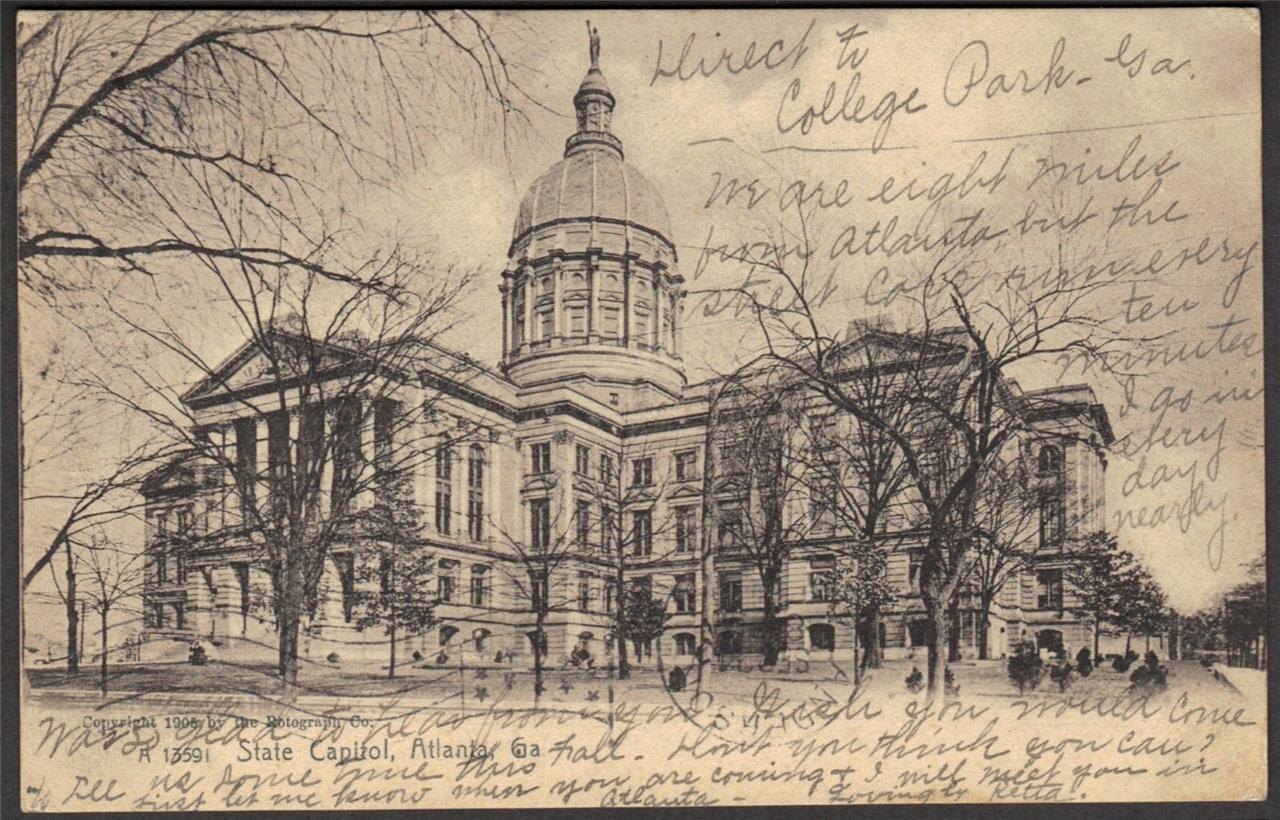 Direct to
College Park - Ga.
We are eight miles
from Atlanta, but the
street cars run every
ten
minutes
I go in
every
day
nearly.
Copyright 1905 by the Rotograph Co.
A 13591 State Capitol, Atlanta, Ga
Was so glad to hear from you. Wish you would come
to see us some time this Fall. Don't you think you can?
Just let me know when you are coming & I will meet you in
Atlanta - Lovingly Retta.